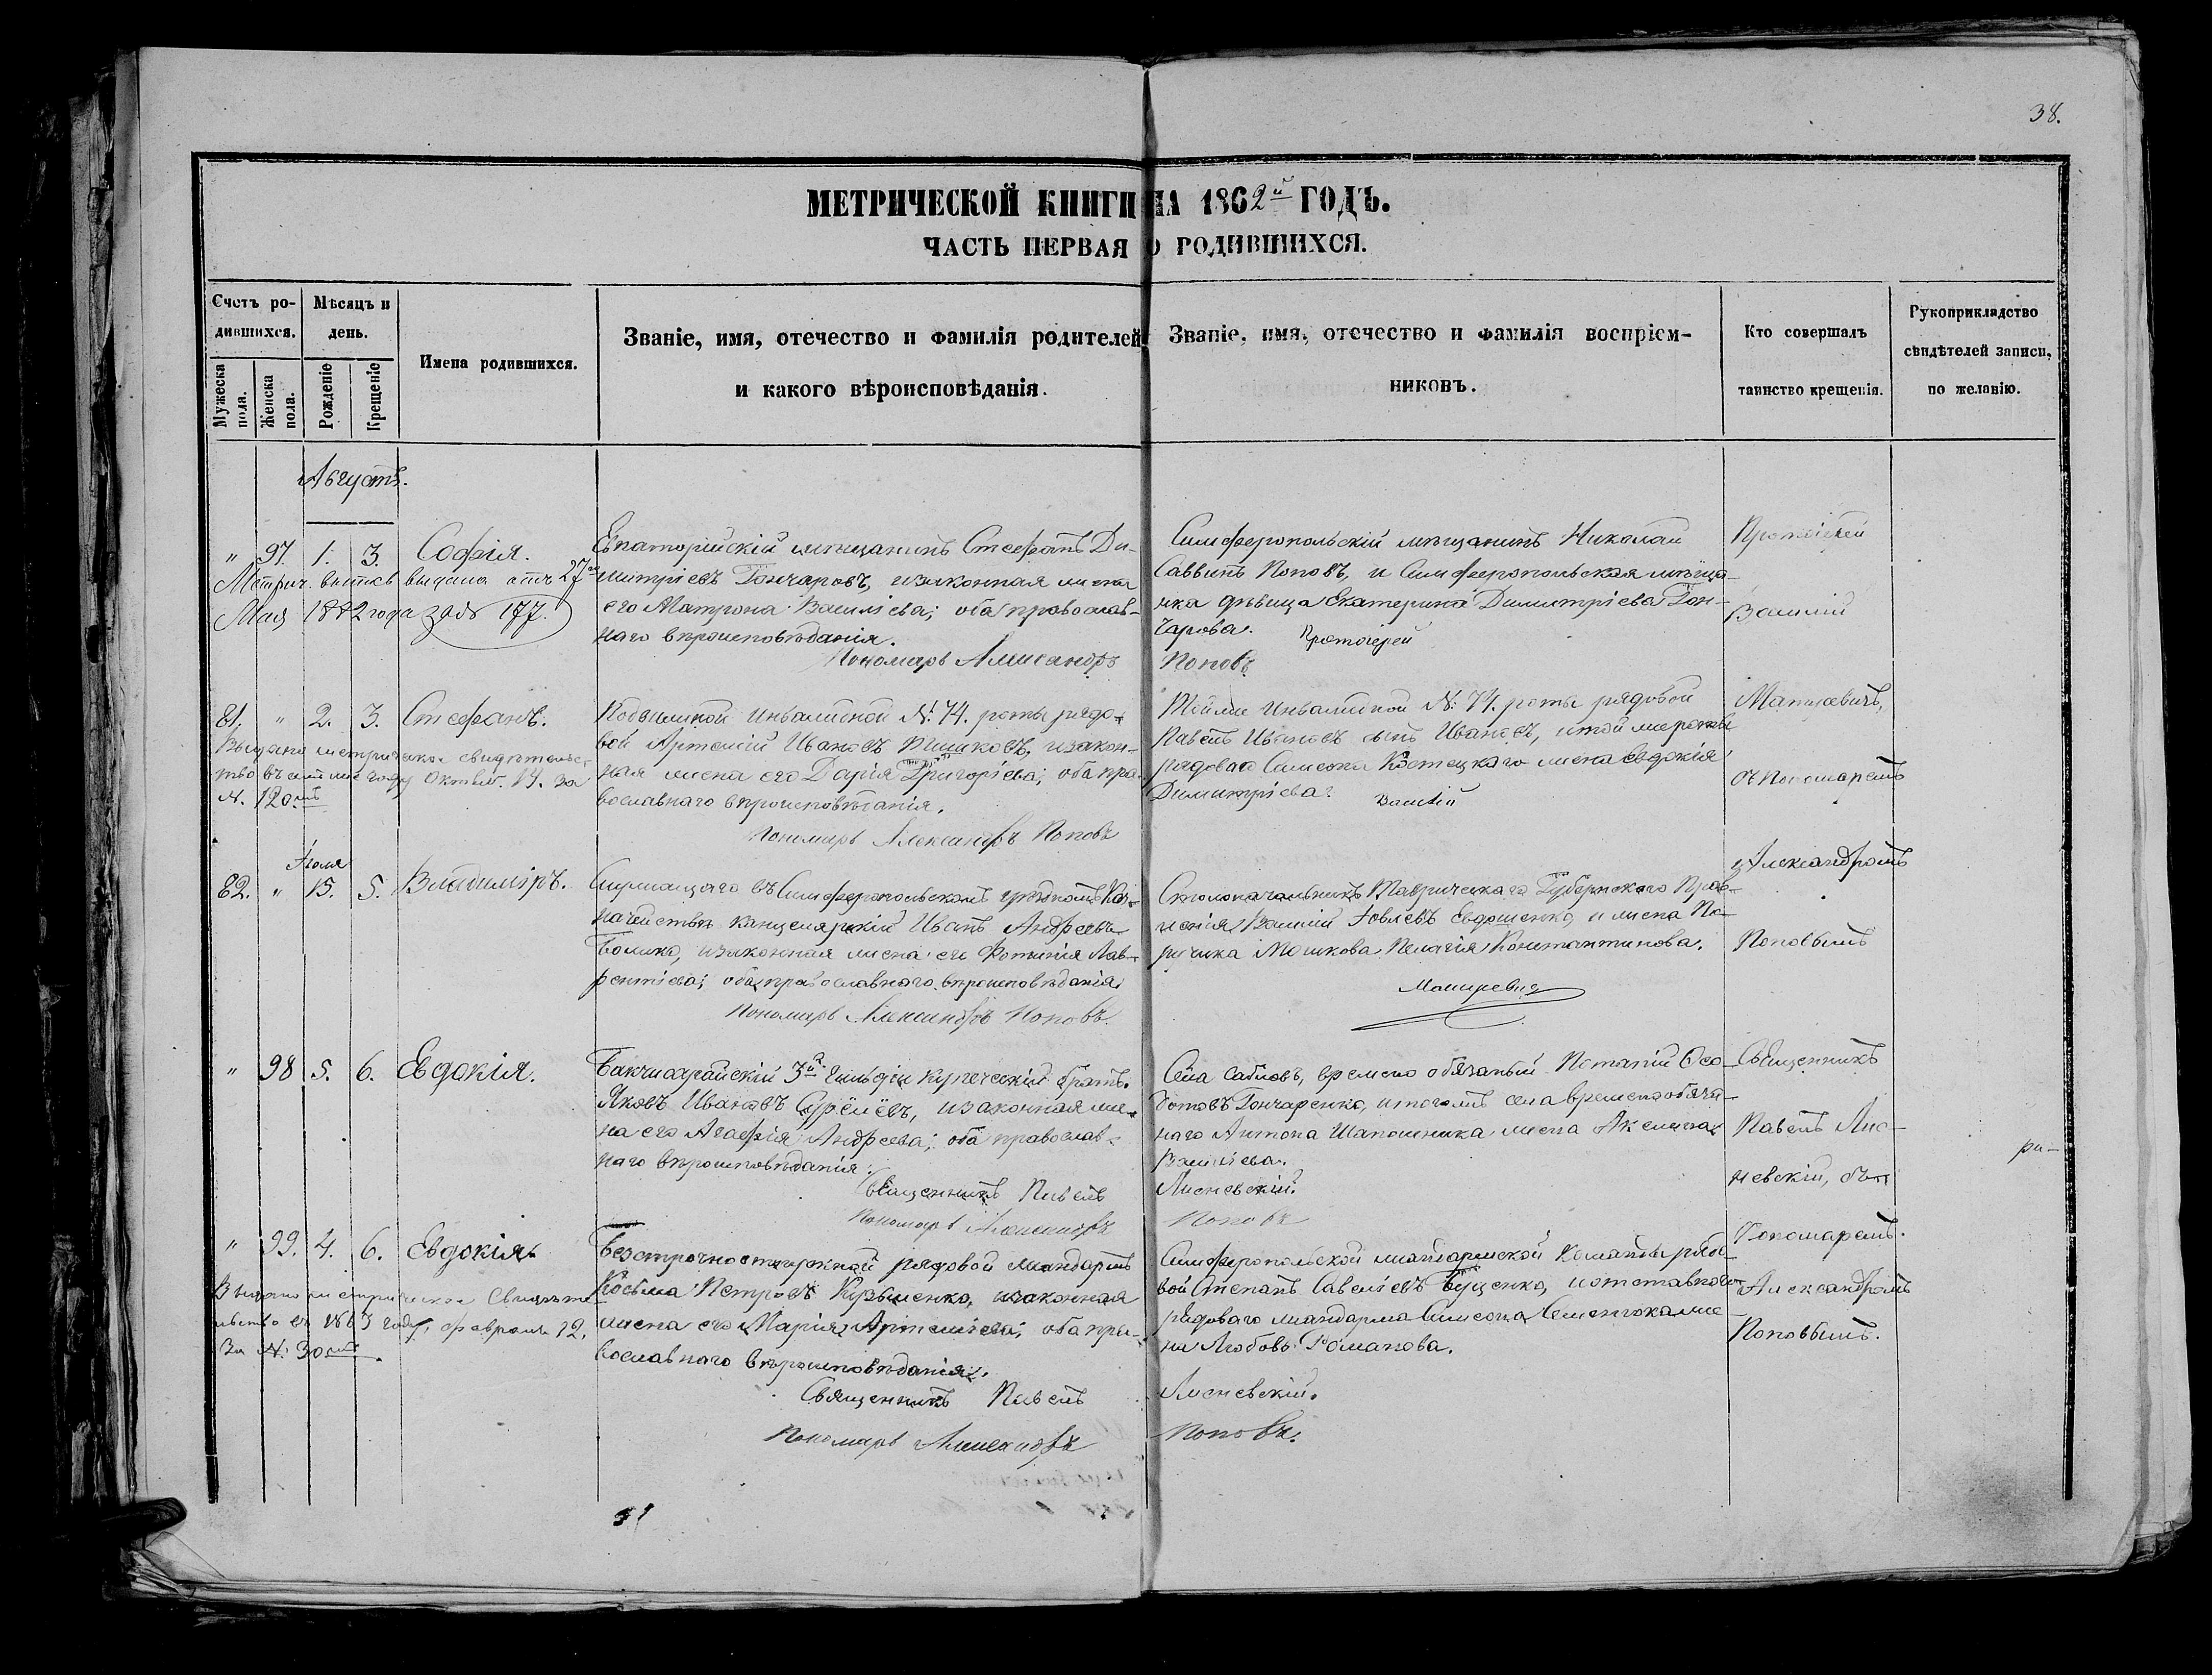 38.
МЕТРИЧЕСКОЙ КНИГИ НА 1862й ГОДЪ.
ЧАСТЬ ПЕРВАЯ О РОДИВШИХСЯ.
Счетъ ро-
дившихся.
Мужеска пола.
Женска пола.
Мѣсяцъ и
день.
Рожденіе
Крещеніе
Имена родившихся.
Званіе, имя, отечество и фамилія родителей
и какого вѣроисповѣданія.
Званіе, имя, отечество и фамилія воспріем-
никовъ.
Кто совершалъ
таинство крещенія.
Рукоприкладство
свидѣтелей записи,
по желанію.
Августъ.
" 97. 1. 3. Софія.
Метрич. выпись выдана отъ 27го
Мая 1882 года за № 177.
Евпаторійскій мѣщанинъ Стефанъ Ди-
митріевъ Гончаровъ, и законная жена
его Матрона Василіева; оба православ-
наго вѣроисповѣданія.
Пономарь Александръ
Симферопольскій мѣщанинъ Николай
Саввинъ Поповъ, и Симферопольская мѣща-
нка дѣвица Екатерина Димитріева Гон-
чарова.
Протоіерей
Поповъ
Протоіерей
Василій
81. " 2. 3. Стефанъ.
Выдано метрическое свидѣтельс-
тво въ семъ же году Октяб. 19. за
№. 120мъ
Подвижной Инвалидной №. 74. роты рядо-
вой Артемій Ивановъ и закон-
ная жена его Дарія Григоріева; оба пра-
вославнаго вѣроисповѣданія.
Пономарь Александръ Поповъ
Той же Инвалидной №. 74. роты рядовой
Павелъ Ивановъ сынъ Ивановъ, и той же роты
рядоваго Симеона Костецкаго жена Евдокія
Димитріева.
Василій
Мацкевичъ,
съ Пономаремъ
Іюля
82. " 15. 5. Владиміръ.
Служащаго въ Симферопольскомъ уѣздномъ Каз-
начействѣ канцелярскій Иванъ Андреевъ
и законная жена его Фотинія Лав-
рентіева; оба православнаго вѣроисповѣданія.
Пономарь Александръ Поповъ.
Столоначальникъ Таврическаго Губернскаго Прав-
ленія Василій Іовлевъ Евдошенко, и жена По-
ручика Мошкова Пелагія Константинова.
Мацкевичъ
Александромъ
Поповымъ
" 98 5. 6. Евдокія.
Бакчисарайскій 3й гильдіи купеческій братъ
Яковъ Ивановъ и законная же-
на его Агафія Андреева; оба православ-
наго вѣроисповѣданія.
Священникъ Павелъ
Пономарь Александръ
Села Сабловъ, временно обязаный Потапій Ѳео-
Гончаренко, и того же села временно обяза-
наго Антона Шапошника жена Акелина
Василіева.
Лисневскій.
Поповъ
Священникъ
Павелъ Лис-
невскій, съ
ри-
" 99. 4. 6. Евдокія.
Выдано метрическое Свидѣте
льство въ 1863 году, февраля 12.
За №. 30мъ.
Безсрочноотпускной рядовой жандармъ
Косьма Петровъ Кузьменко, и законная
жена его Марія Артеміева; оба пра-
вославнаго вѣроисповѣданія.
Священникъ Павелъ
Пономарь Александръ
Симферопольской жандармской Команды рядо-
вой Степанъ Савеліевъ Буценко, и отставного
рядоваго жандарма Симеона же-
на Любовь Романова.
Лисневскій.
Поповъ.
Пономаремъ.
Александромъ
Поповымъ.